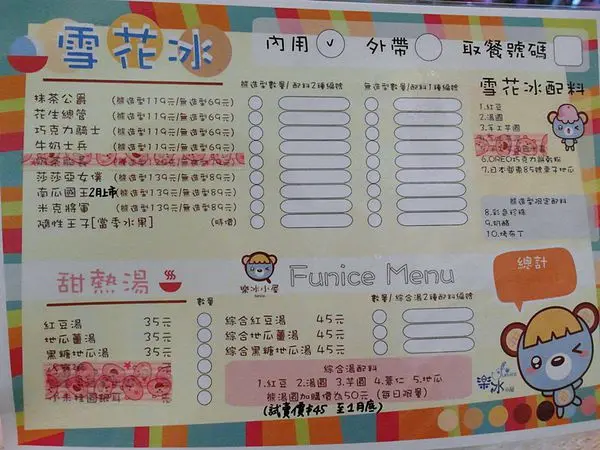 雪花冰
內用 ✓ 外帶 取餐號碼
熊造型數量/配料2種編號
無造型數量/配料1種編號
抹茶公爵 (熊造型119元/無造型69元)
花生總管 (熊造型119元/無造型69元)
巧克力騎士 (熊造型119元/無造型69元)
牛奶士兵 (熊造型119元/無造型69元)
莎莎亞女僕 (熊造型139元/無造型89元)
南瓜國王2月上市 (熊造型139元/無造型89元)
米克將軍 (熊造型139元/無造型89元)
隨性王子[當季水果] (時價)
雪花冰配料
1.紅豆
2.湯圓
3.手工芋圓
6.OREO巧克力餅乾粉
7.日本
熊造型限定配料
8.彩色珍珠
9.奶酪
10.烤布丁
甜熱湯
數量
紅豆湯 35元
地瓜薑湯 35元
黑糖地瓜湯 35元
樂冰小屋
Funice Menu
數量/綜合湯2種配料編號
綜合紅豆湯 45元
綜合地瓜薑湯 45元
綜合黑糖地瓜湯 45元
綜合湯配料
1.紅豆 2.湯圓 3.芋圓 4.薏仁 5.地瓜
熊湯圓加購價為50元 (每日限量)
(試賣價$45 至1月底)
總計
樂冰小屋